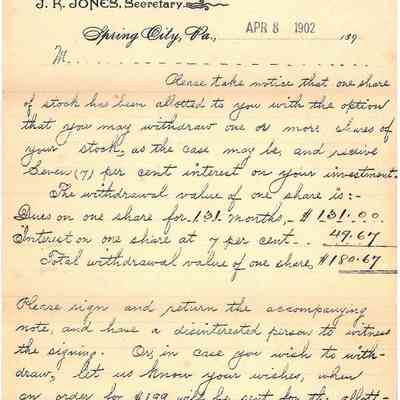 J. K. JONES, Secretary.
Spring City, Pa., APR 8 1902 189
M
Please take notice that one share
of stock has been allotted to you with the option
that you may withdraw one or more shares of
your stock, as the case may be, and receive
Seven (7) per cent interest on your investment.
The withdrawal value of one share is:-
Dues on one share for 131 months,- $131.00
Interest on one share at 7 per cent - 49.67
Total withdrawal value of one share, $180.67
Please sign and return the accompanying
note, and have a disinterested person to witness
the signing. Or, in case you wish to with-
draw, let us know your wishes, when
an order for $199 will be sent for the allott-